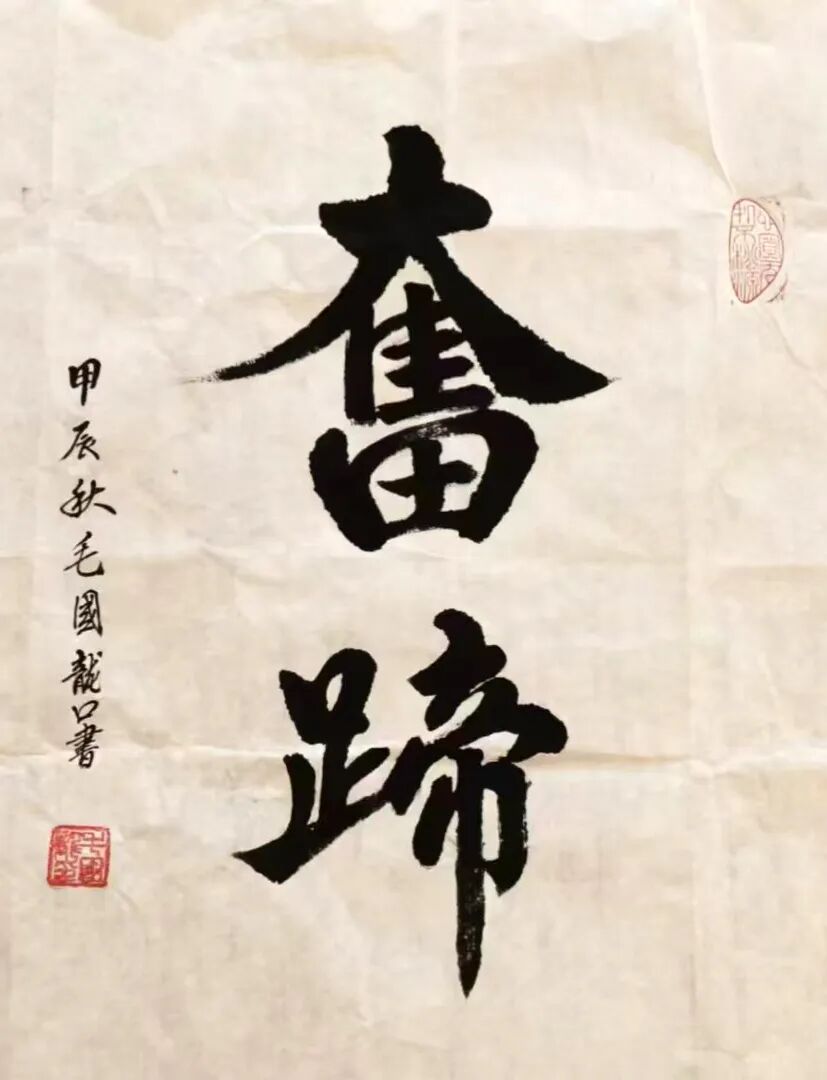 奮蹄
甲辰秋毛國龍口書